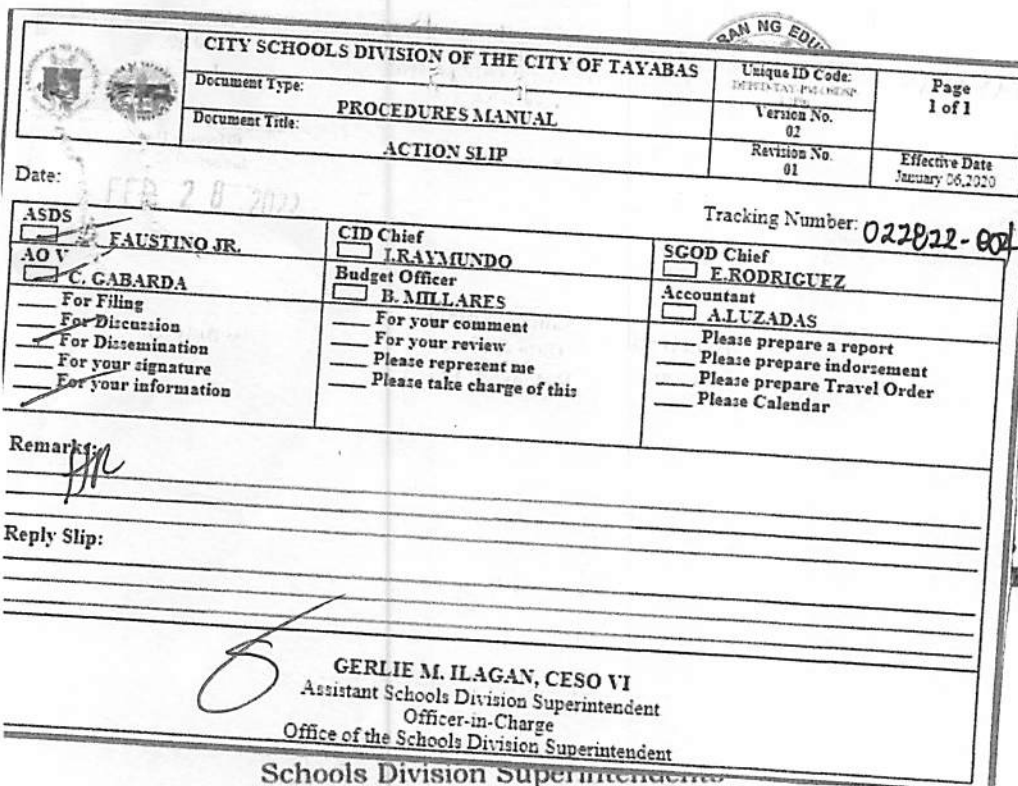 BAN NG EDU
CITY SCHOOLS DIVISION OF THE CITY OF TAYABAS
Document Type:
PROCEDURES MANUAL
Document Title:
ACTION SLIP
Unique ID Code:
Version No.
02
Revision No.
01
Page
1 of 1
Effective Date
January 06,2020
Date: FEB 28 2022
Tracking Number: 022822-004
ASDS
FAUSTINO JR.
AO V
C. GABARDA
___ For Filing
___ For Discussion
___ For Dissemination
___ For your signature
___ For your information
CID Chief
I.RAYMUNDO
Budget Officer
B. MILLARES
___ For your comment
___ For your review
___ Please represent me
___ Please take charge of this
SGOD Chief
E.RODRIGUEZ
Accountant
A.LUZADAS
___ Please prepare a report
___ Please prepare indorsement
___ Please prepare Travel Order
___ Please Calendar
Remarks:
Reply Slip:
GERLIE M. ILAGAN, CESO VI
Assistant Schools Division Superintendent
Officer-in-Charge
Office of the Schools Division Superintendent
Schools Division Superintendents